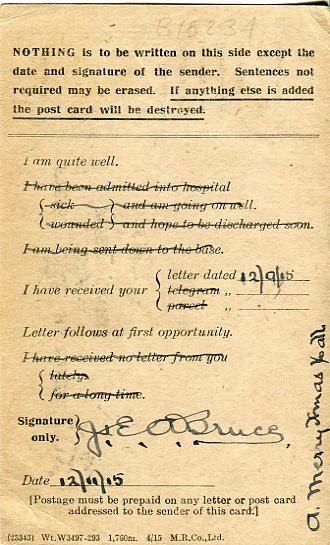 B15234
NOTHING is to be written on this side except the
date and signature of the sender. Sentences not
required may be erased. If anything else is added
the post card will be destroyed.
I am quite well.
I have been admitted into hospital
sick and am going on well.
wounded and hope to be discharged soon.
I am being sent down to the base.
letter dated 12/9/15
I have received your telegram „
parcel „
Letter follows at first opportunity.
I have received no letter from you
lately
for a long time.
Signature
only. Js E A Bruce
Date 12/11/15
[Postage must be prepaid on any letter or post card
addressed to the sender of this card.]
(25343) Wt.W3497-293 1,760m. 4/15 M.R.Co.,Ltd.
A Merry Xmas to all